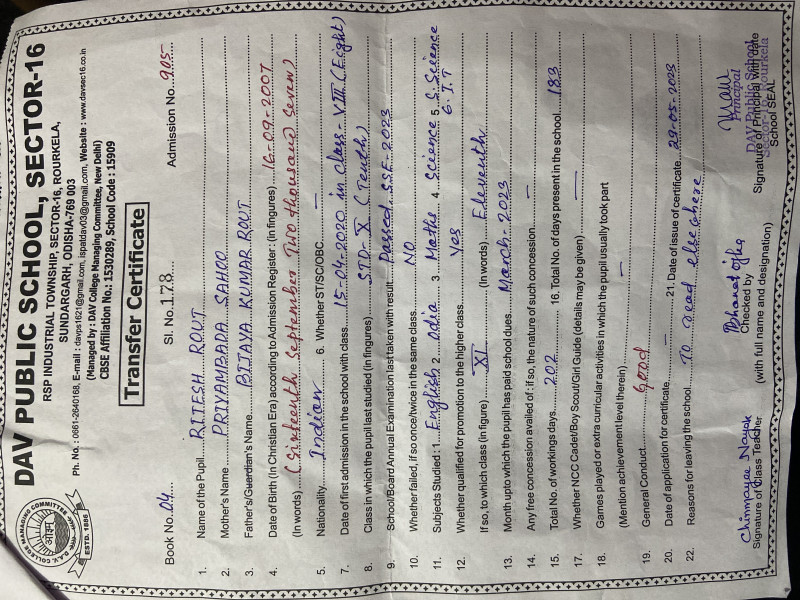 DAV PUBLIC SCHOOL, SECTOR-16
RSP INDUSTRIAL TOWNSHIP, SECTOR-16, ROURKELA,
SUNDARGARH, ODISHA-769 003
Ph. No. : 0661-2640168, E-mail : davps1621@gmail.com, ispatdav03@gmail.com, Website : www.davsec16.co.in
(Managed by : DAV College Managing Committee, New Delhi)
CBSE Affiliation No.: 1530289, School Code : 15909
Transfer Certificate
Book No. 04 Sl. No. 178 Admission No. 905
1. Name of the Pupil RITESH ROUT
2. Mother's Name PRIYAMBADA SAHOO
3. Father's/Guardian's Name BIJAYA KUMAR ROUT
4. Date of Birth (In Christian Era) according to Admission Register : (In fingures) 16-09-2007
(In words) (Sixteenth September Two thousand Seven)
5. Nationality Indian 6. Whether ST/SC/OBC. —
7. Date of first admission in the school with class 15-04-2020 in class - VIII (Eight)
8. Class in which the pupil last studied (In fingures) STD - X (Tenth)
9. School/Board Annual Examination last taken with result Passed SSE-2023
10. Whether failed, if so once/twice in the same class. NO
11. Subjects Studied : 1. English 2. Odia 3. Maths 4. Science 5. S. Science
6. I.T
12. Whether qualified for promotion to the higher class Yes
If so, to which class (In figure) XI (In words) Eleventh
13. Month upto which the pupil has paid school dues. March-2023
14. Any free concession availed of : if so, the nature of such concession. —
15. Total No. of workings days. 202 16. Total No. of days present in the school. 183
17. Whether NCC Cadet/Boy Scout/Girl Guide (details may be given) —
18. Games played or extra curricular activities in which the pupil usually took part
(Mention achievement level therein) —
19. General Conduct Good
20. Date of application for certificate — 21. Date of issue of certificate 29-05-2023
22. Reasons for leaving the school To read elsewhere
Chinmayee Nayak
Signature of Class Teacher
Checked by
(with full name and designation)
Principal
DAV Public School
Sector-16, Rourkela
Signature of Principal with date
School SEAL
ESTD. 1886